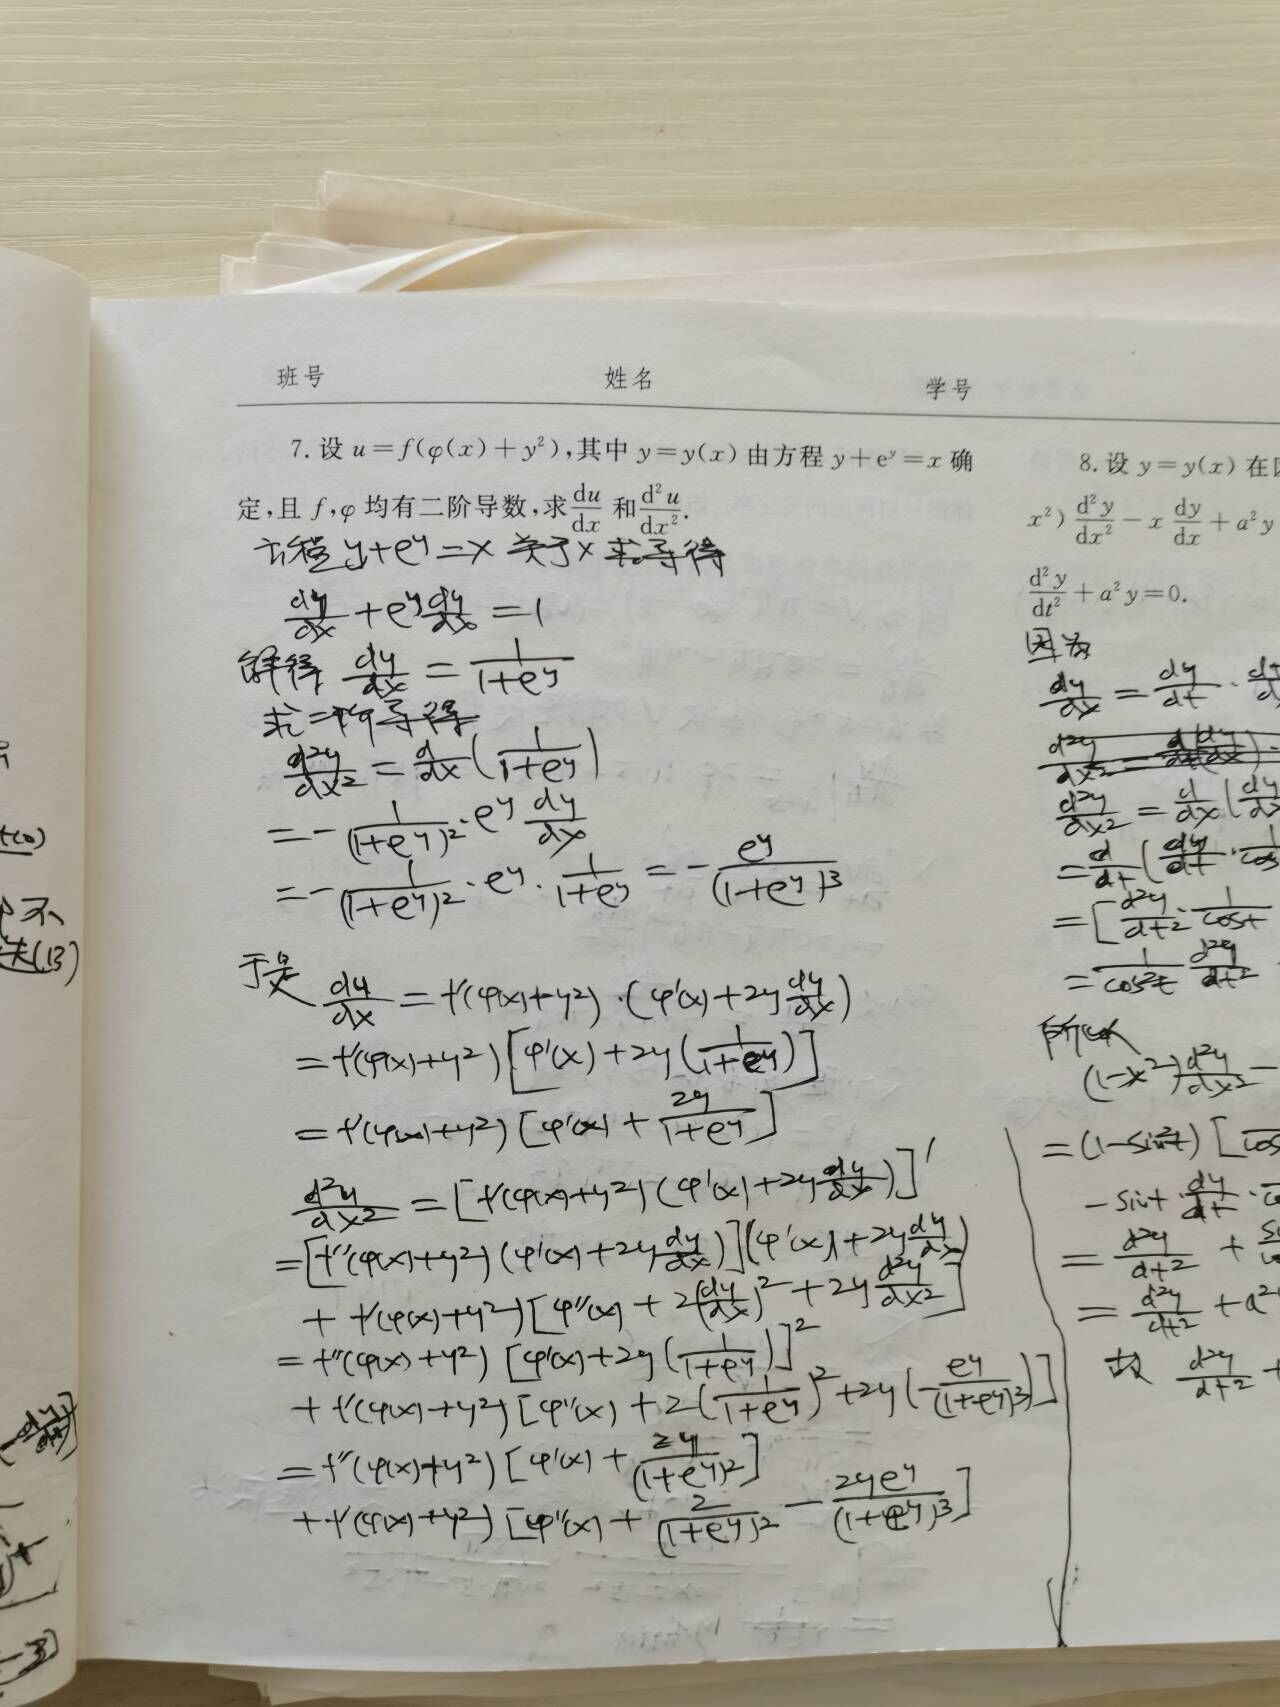 班号 姓名 学号
7. 设 u=f(φ(x)+y²),其中 y=y(x) 由方程 y+eʸ=x 确
定,且 f,φ 均有二阶导数,求 du/dx 和 d²u/dx².
方程 y+eʸ=x 关于x 求导得
dy/dx + eʸ dy/dx = 1
解得 dy/dx = 1/(1+eʸ)
求二阶导得
d²y/dx² = d/dx (1/(1+eʸ))
= -1/(1+eʸ)² · eʸ dy/dx
= -1/(1+eʸ)² · eʸ · 1/(1+eʸ) = -eʸ/(1+eʸ)³
于是 du/dx = f'(φ(x)+y²)·(φ'(x)+2y dy/dx)
= f'(φ(x)+y²)[φ'(x)+2y(1/(1+eʸ))]
= f'(φ(x)+y²)[φ'(x)+2y/(1+eʸ)]
d²u/dx² = [f'(φ(x)+y²)(φ'(x)+2y dy/dx)]'
= [f''(φ(x)+y²)(φ'(x)+2y dy/dx)](φ'(x)+2y dy/dx)
+ f'(φ(x)+y²)[φ''(x)+2(dy/dx)²+2y d²y/dx²]
= f''(φ(x)+y²)[φ'(x)+2y(1/(1+eʸ))]²
+ f'(φ(x)+y²)[φ''(x)+2(1/(1+eʸ))²+2y(-eʸ/(1+eʸ)³)]
= f''(φ(x)+y²)[φ'(x)+2y/(1+eʸ)²]
+ f'(φ(x)+y²)[φ''(x)+2/(1+eʸ)²-2yeʸ/(1+eʸ)³]
8. 设 y=y(x) 在
x²) d²y/dx² - x dy/dx + a²y
d²y/dt² + a²y=0.
因为
dy/dx = dy/dt ·
d²y/dx² = d/dx (dy/dx
= d/dt (dy/dt · 1/cos
= [d²y/dt² · 1/cost
= 1/cos²t d²y/dt²
所以
(1-x²) d²y/dx² -
= (1-sin²t) [
- sint · dy/dt ·
= d²y/dt² +
= d²y/dt² + a²
故 d²y/dt² +